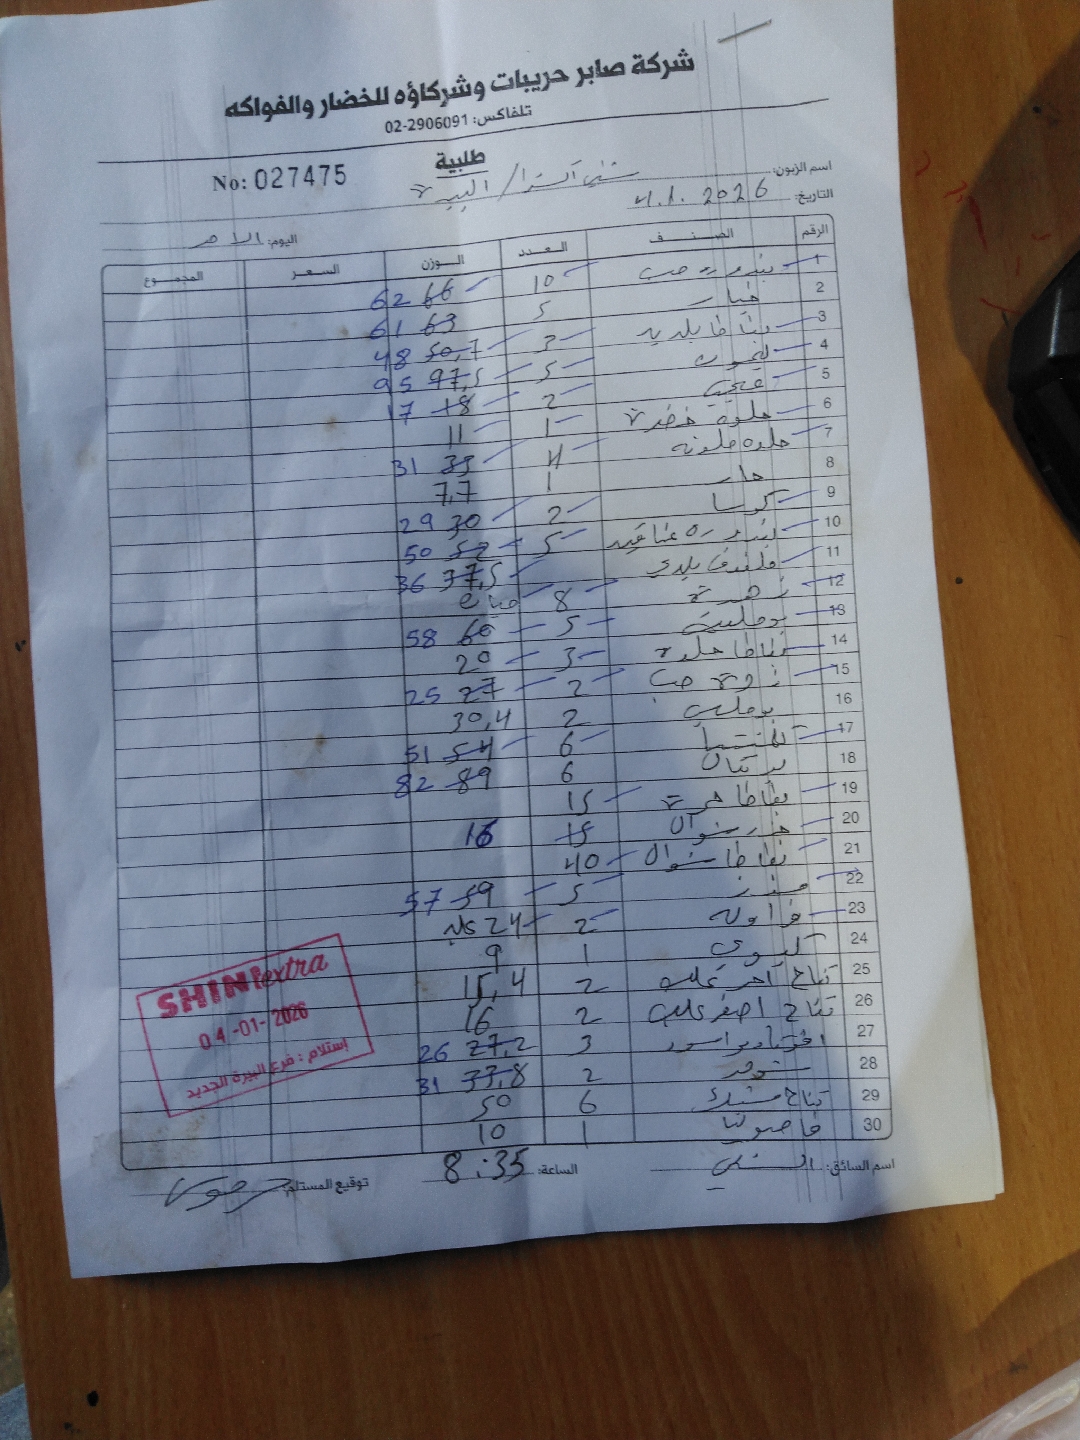 شركة صابر حريبات وشركاؤه للخضار والفواكه
تلفاكس: 02-2906091
طلبية
No: 027475
اسم الزبون: شني اكسترا / البيرة
التاريخ: 4.1.2026
اليوم: الاحد
الرقم الصنف العدد الوزن السعر المجموع
1 بندورة حب 10 66 62
2 خيار 5 63 61
3 بطاطا بلدية 3 50,7 48
4 ليمون 5 97,5 95
5 2 18 17
6 حلوة خضرة 1 11
7 حلوه ملونه 4 33 31
8 حار 1 7,7
9 كوسا 2 30 29
10 بندوره عناقيد 5 52 50
11 ملفوف بلدي 37,5 36
12 زهرة 8 حبات
13 5 60 58
14 بطاطا حلوه 3 20
15 حب 2 27 25
16 2 30,4
17 كلمنتينا 6 54 51
18 برتقال 6 89 82
19 بطاطا حمرة 15
20 جزر شوال 15 16
21 بطاطا شوال 40
22 5 59 57
23 فراوله 2 24 علبه
24 كيوي 1 9
25 تفاح احمر علب 2 15,4
26 تفاح اصفر علب 2 16
27 اسود 3 27,2 26
28 شومر 2 33,8 31
29 تفاح 6 50
30 فاصوليا 1 10
SHINI extra
04-01-2026
إستلام : فرع البيرة الجديد
اسم السائق: الشني
الساعة: 8:35
توقيع المستلم: